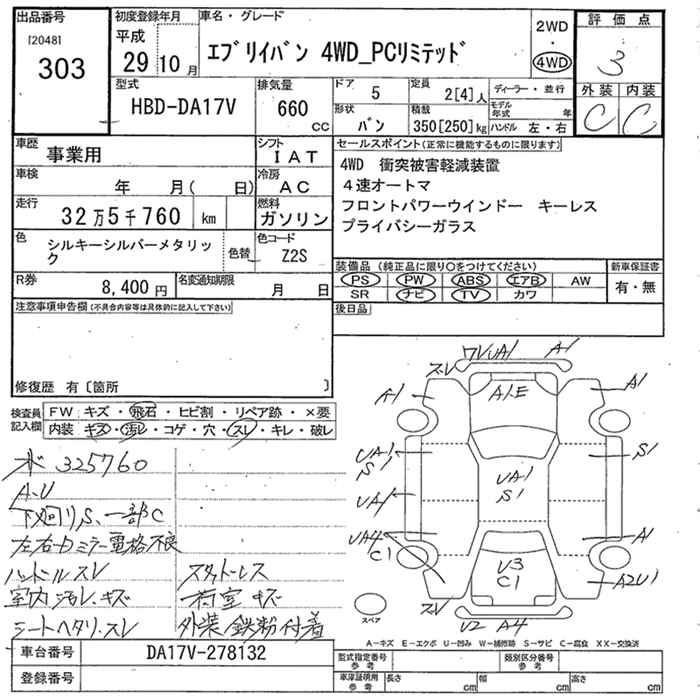 出品番号
[2048]
303
初度登録年月
平成
29 10 月
車名・グレード
エブリイバン 4WD_PCリミテッド
2WD
・
4WD
評価点
3
外装 内装
C C
型式
HBD-DA17V
排気量
660
cc
ドア 5
定員 2[4]人
形状 バン
積載 350[250]kg
ディーラー・並行
モデル年式 年
ハンドル 左・右
車歴
事業用
シフト
IAT
車検
年 月( 日)
冷房
AC
走行
32万5千760 km
燃料
ガソリン
色
シルキーシルバーメタリック
色替
色コード
Z2S
R券
8,400 円
名変通知期限
月 日
セールスポイント(正常に機能するものに限ります)
4WD 衝突被害軽減装置
4速オートマ
フロントパワーウインドー キーレス
プライバシーガラス
装備品(純正品に限り○をつけてください)
新車保証書
PS PW ABS エアB AW
SR ナビ TV カワ
有・無
後日品
注意事項申告欄(不具合内容等は具体的に記入して下さい)
修復歴 有〔箇所 〕
検査員
記入欄
FW キズ・飛石・ヒビ割・リペア跡・×要
内装 キズ・汚レ・コゲ・穴・スレ・キレ・破レ
325760
A.U
下廻りS、一部C
左右ミラー電格不良
ハンドルスレ
スタットレス
室内汚レ、キズ
荷室キズ
シートヘタリ、スレ
外装鉄粉付着
ワレUA1
A1
スレ
A1
A1.E
A1
UA1
S1
S1
UA1
S1
UA1
UA4
C1
A1
U3
C1
A2U1
スレ
U2 A4
スペア
A－キズ E－エクボ U－凹み W－補修跡 S－サビ C－腐食 XX－交換済
車台番号
DA17V-278132
登録番号
型式指定番号
参考
類別区分番号
参考
車庫証明用
参考
長さ cm
幅 cm
高さ cm